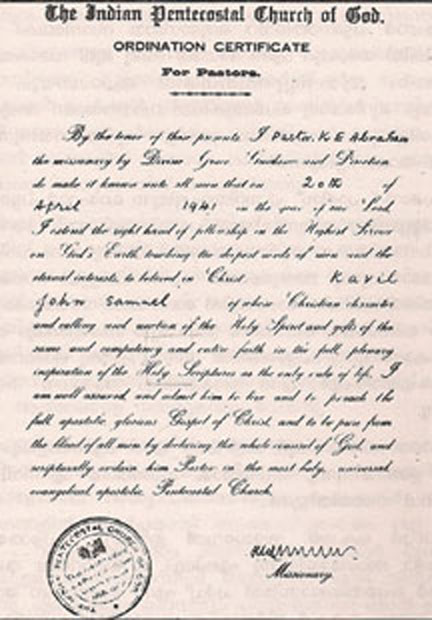 The Indian Pentecostal Church of God.
ORDINATION CERTIFICATE
For Pastors.
By the tenor of these presents I Pastor. K E Abraham
the missionary by Divine Grace Guidance and Direction
do make it known unto all men that on 20th of
April 1941 in the year of our Lord
I extend the right hand of fellowship in the Highest Service
on God's Earth, touching the deepest needs of men and the
eternal interests, to beloved in Christ Kavil
John Samuel of whose Christian character
and calling and unction of the Holy Spirit and gifts of the
same and competency and entire faith in the full, plenary
inspiration of the Holy Scriptures as the only rule of life, I
am well assured, and admit him to live and to preach the
full, apostolic, glorious Gospel of Christ, and to be pure from
the blood of all men by declaring the whole counsel of God, and
scripturally ordain him Pastor in the most holy, universal,
evangelical, apostolic, Pentecostal Church.
PENTECOSTAL CHURCH OF GOD
Missionary.